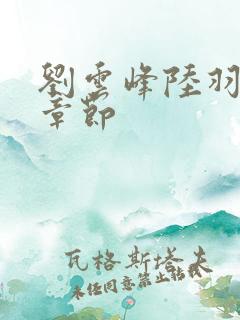 劉雲峰陸羽
章節
瓦格斯塔夫
未經同意禁止轉載